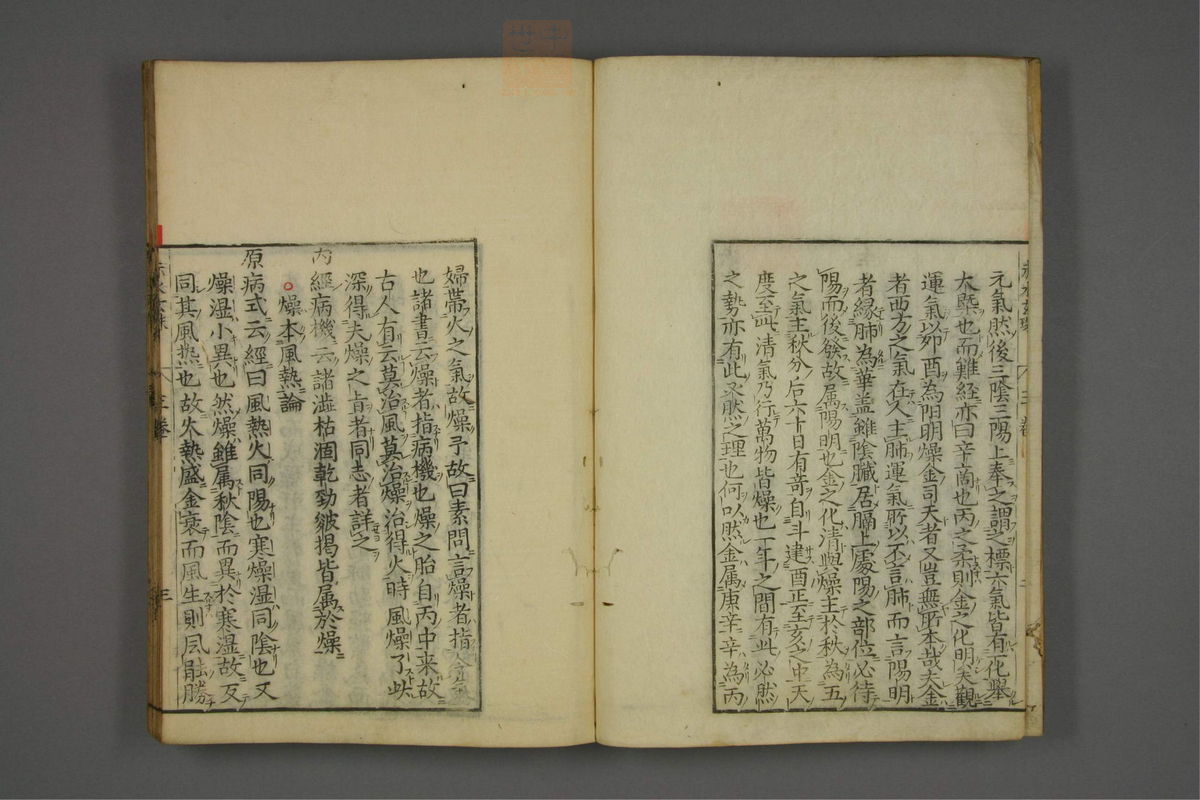 元氣然後三陰三陽上奉之謂之標六氣皆有一化舉
大槩也而難經亦曰辛商也丙之柔則金之化明矣觀
運氣以卯酉為阳明燥金司天者又豈無所本哉夫金
者西方之氣在人主肺運氣所以不言肺而言陽明
者緣肺為華盖雖陰臟居膈上處陽之部位必待
陽而後發故属陽明也金之化清與燥主於秋為五
之氣主秋分后六十日有竒自斗建酉正至亥之中天
度至此清氣乃行萬物皆燥也一年之間有此必然
之勢亦有此不然之理也何以然金属庚辛辛為丙
婦帶火之氣故燥乎故曰素問言燥者指金氣
也諸書云燥者指病機也燥之胎自丙中来故
古人有云莫治風莫治燥治得火時風燥了此
深得夫燥之旨者同志者詳之
内經病機云諸澁枯涸乾勁皴揭皆属於燥
燥本風熱論
原病式云經曰風熱火同陽也寒燥湿同陰也又
燥湿小異也然燥雖属秋陰而異於寒湿故反
同其風热也故火熱盛金衰而風生則風能勝
三卷
三